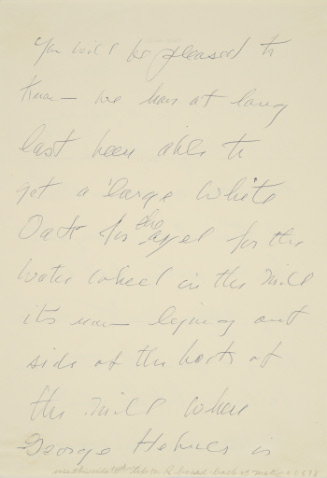 You will be pleased to
Know — we have at long
last been able to
get a large White
Oak for the axel for the
Water Wheel in the Mill
its now lying out
side at the back of
the Mill where
George Holmes is